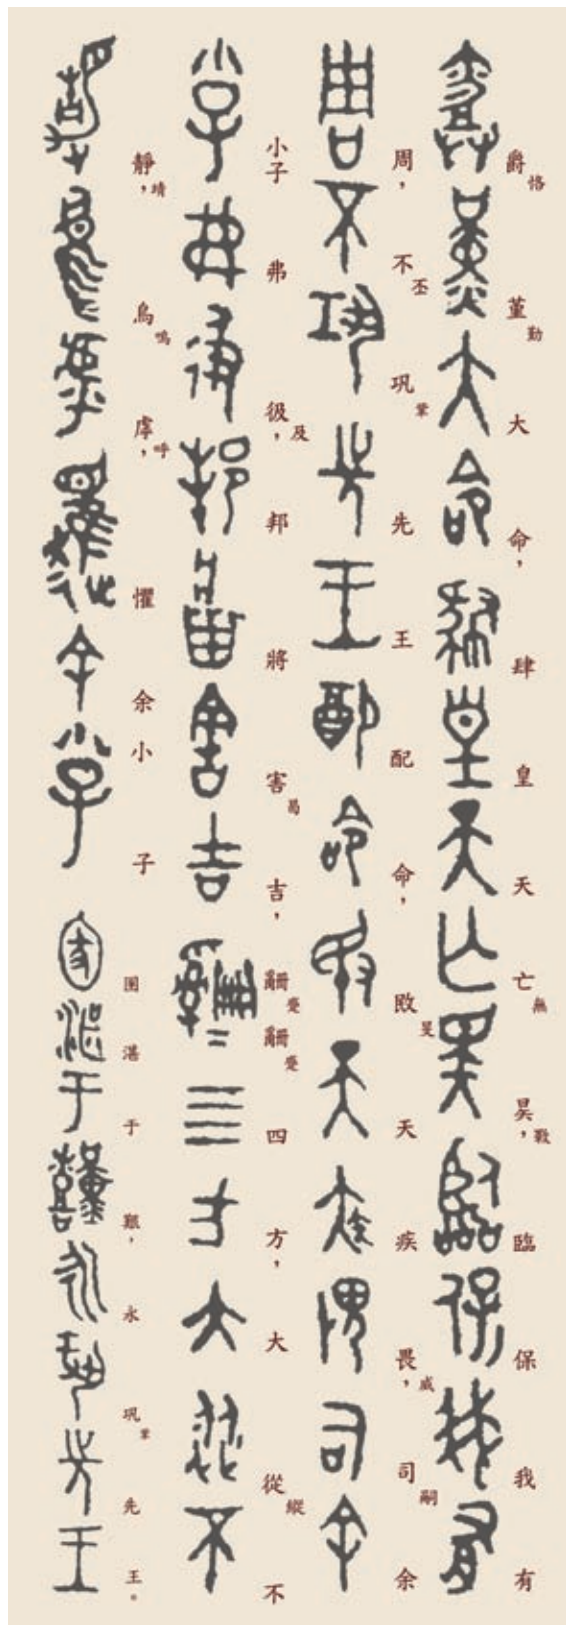 爵恪堇勤大命，肆皇天亡無昊，斁臨保我有
周，不丕巩鞏先王配命，敃旻天疾畏，威司嗣余
小子弗彶，及邦將害曷吉，四方，大從縱不
靜，靖烏嗚虖，呼懼余小子圂湛于艱，永巩鞏先王。